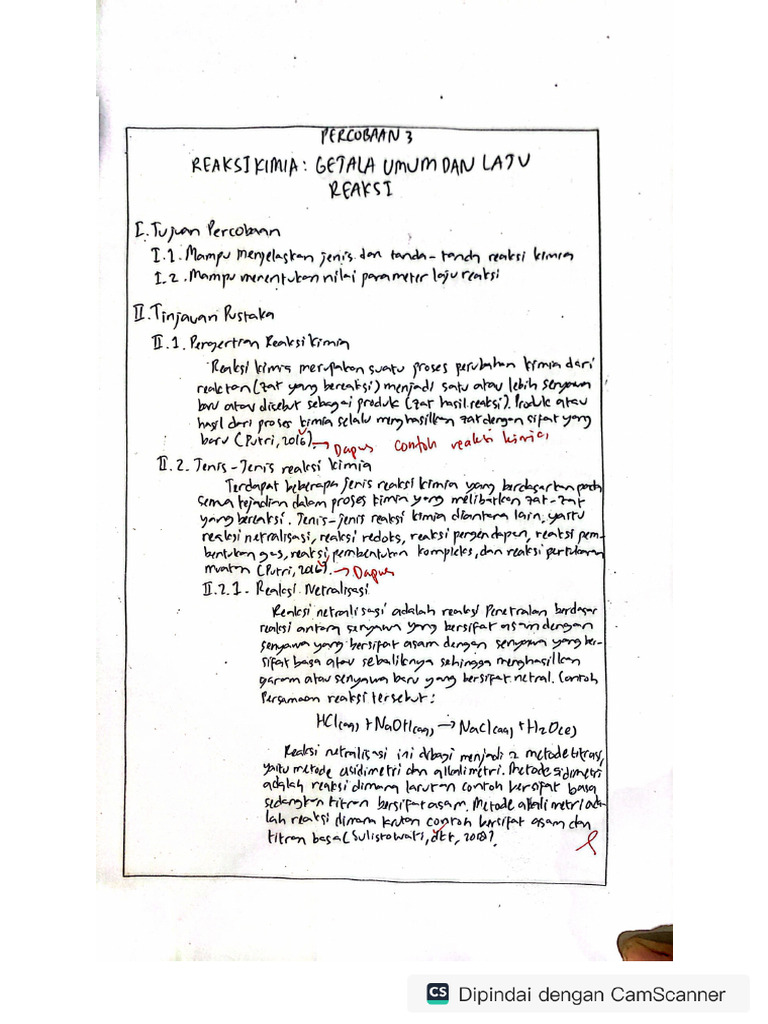 PERCOBAAN 3
REAKSI KIMIA : GEJALA UMUM DAN LAJU
REAKSI
I. Tujuan Percobaan
I.1. Mampu menjelaskan jenis dan tanda-tanda reaksi kimia
I.2. Mampu menentukan nilai parameter laju reaksi
II. Tinjauan Pustaka
II.1. Pengertian Reaksi Kimia
Reaksi kimia merupakan suatu proses perubahan kimia dari
reaktan (zat yang bereaksi) menjadi satu atau lebih senyawa
baru atau disebut sebagai produk (zat hasil reaksi). Produk atau
hasil dari proses kimia selalu menghasilkan zat dengan sifat yang
baru (Putri, 2016). → Dapus contoh reaksi kimia
II.2. Jenis-Jenis reaksi kimia
Terdapat beberapa jenis reaksi kimia yang berdasarkan pada
semua kejadian dalam proses kimia yang melibatkan zat-zat
yang bereaksi. Jenis-jenis reaksi kimia diantara lain, yaitu
reaksi netralisasi, reaksi redoks, reaksi pengendapan, reaksi pem-
bentukan gas, reaksi pembentukan kompleks, dan reaksi pertukaran
muatan (Putri, 2016). → Dapus
II.2.1. Reaksi Netralisasi
Reaksi netralisasi adalah reaksi Penetralan berdasar
reaksi antara senyawa yang bersifat asam dengan
senyawa yang bersifat asam dengan senyawa yang ber-
sifat basa atau sebaliknya sehingga menghasilkan
garam atau senyawa baru yang bersifat netral. Contoh
Persamaan reaksi tersebut :
HCl(aq) + NaOH(aq) → NaCl(aq) + H2O(l)
Reaksi netralisasi ini dibagi menjadi 2 metode titrasi,
yaitu metode asidimetri dan alkalimetri. Metode asidimetri
adalah reaksi dimana larutan contoh bersifat basa
sedangkan titran bersifat asam. Metode alkalimetri ada-
lah reaksi dimana contoh bersifat asam dan
titran basa (Sulistowati, dkk, 2018).
CS Dipindai dengan CamScanner